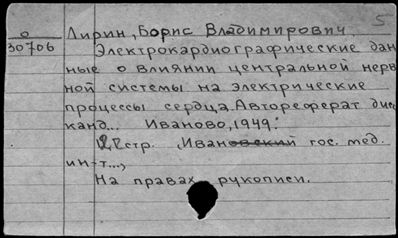 5
0
30706
Лирин, Борис Владимирович.
Электрокардиографические дан
ные о влиянии центральной нерв
ной системы на электрические
процессы сердца. Автореферат дис
канд... Иваново, 1949.
стр. Ивановский гос. мед.
ин-т...,
На правах рукописи.